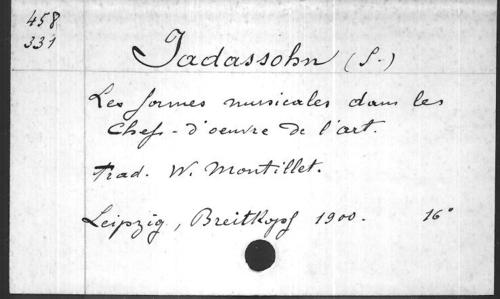 458
331
Jadassohn (S.)
Les formes musicales dans les
Chefs-d'oeuvre de l'art.
Trad. W. Montillet.
Leipzig, Breitkopf 1900. 16°